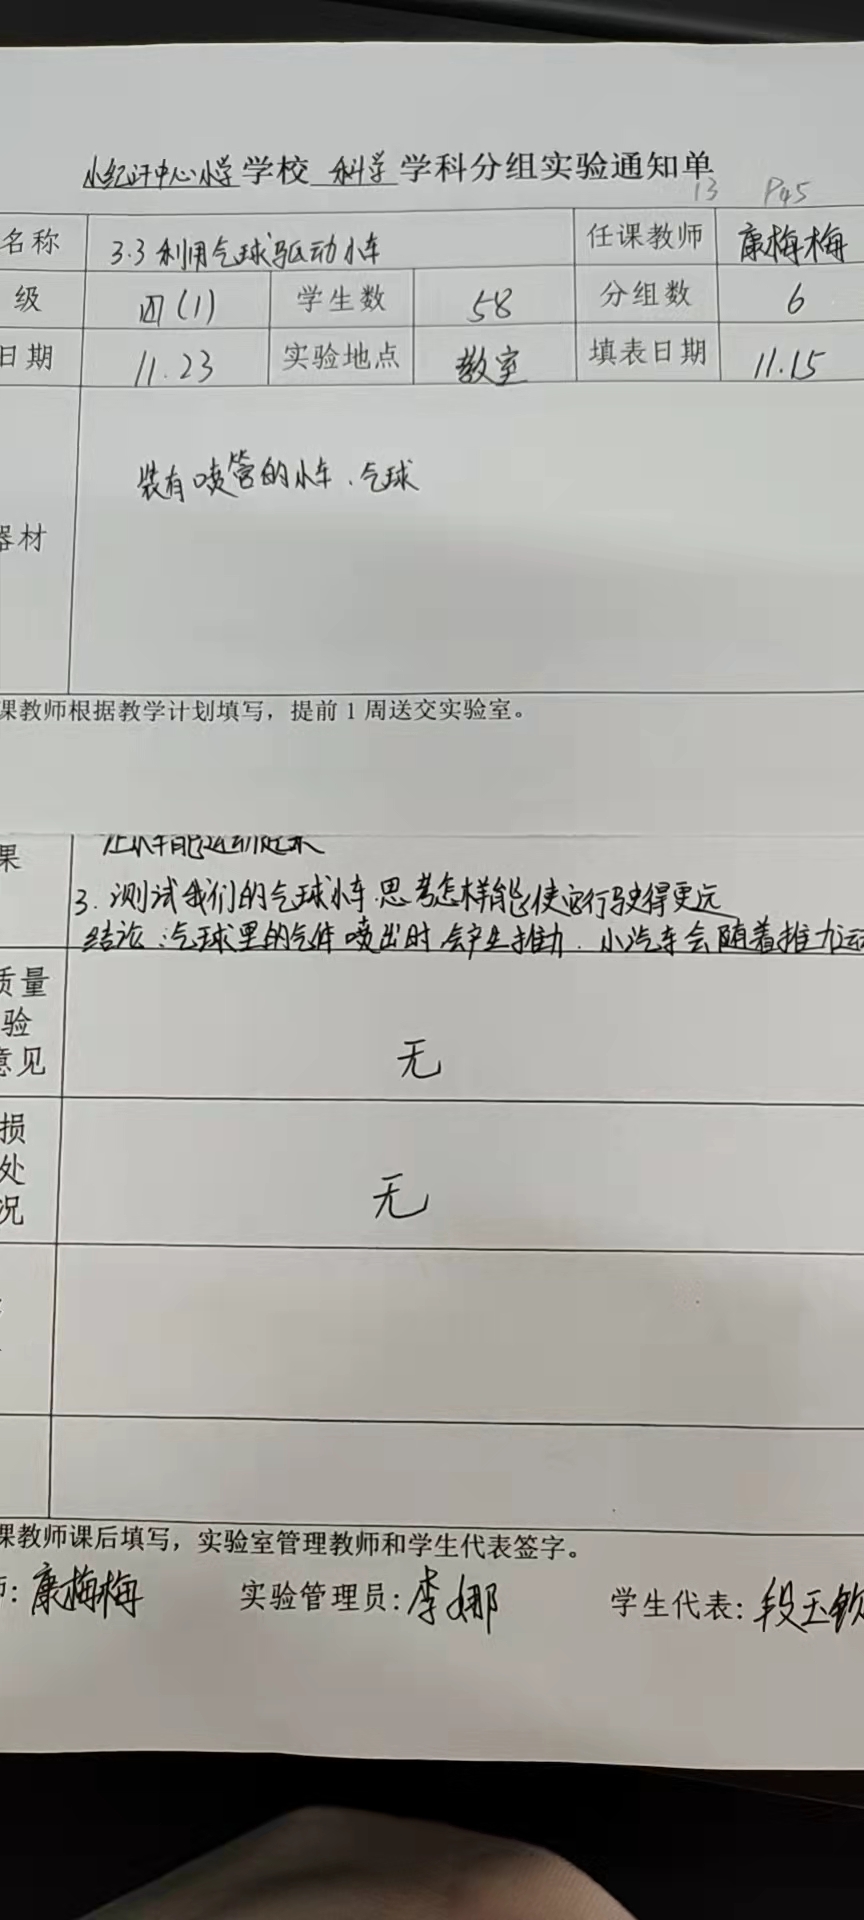 小纪汗中心小学学校 科学 学科分组实验通知单
13 P45
名称 3.3 利用气球驱动小车 任课教师 康梅梅
级 四(1) 学生数 58 分组数 6
日期 11.23 实验地点 教室 填表日期 11.15
装有喷管的小车、气球
器材
课教师根据教学计划填写，提前1周送交实验室。
让小车能运动起来
果
3. 测试我们的气球小车.思考怎样能使它行驶得更远
结论:气球里的气体喷出时会产生推力.小汽车会随着推力运动
质量
验
意见
无
损
处
况
无
课教师课后填写，实验室管理教师和学生代表签字。
师: 康梅梅 实验管理员: 李娜 学生代表: 段玉钦